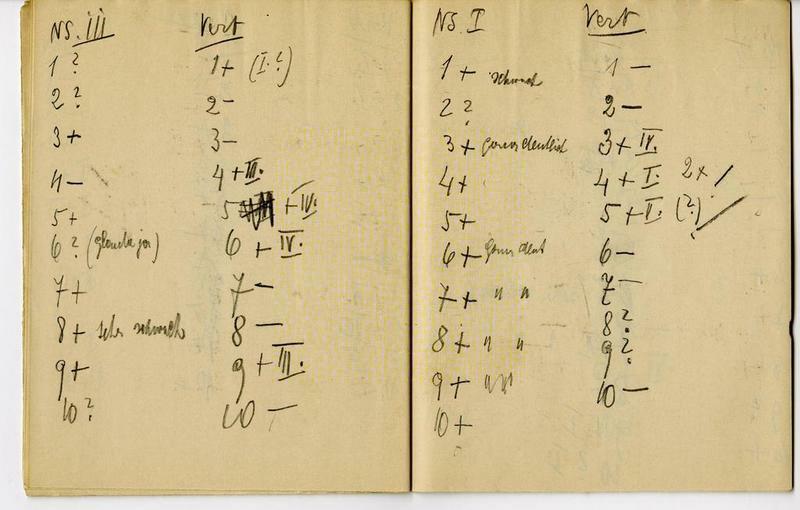 NS. III
1 ?
2 ?
3 +
4 –
5 +
6 ? (glaube ja)
7 +
8 + sehr schwach
9 +
10 ?
Vert
1 + (I.?)
2 –
3 –
4 + III.
5 + IV.
6 + IV.
7 –
8 –
9 + III.
10 –
NS. I
1 + schwach
2 ?
3 + ganz deutlich
4 +
5 +
6 + ganz deut
7 + " "
8 + " "
9 + " "
10 +
Vert.
1 –
2 –
3 + IV.
4 + I. 2x /
5 + I. (?)
6 –
7 –
8 ?
9 ?
10 –